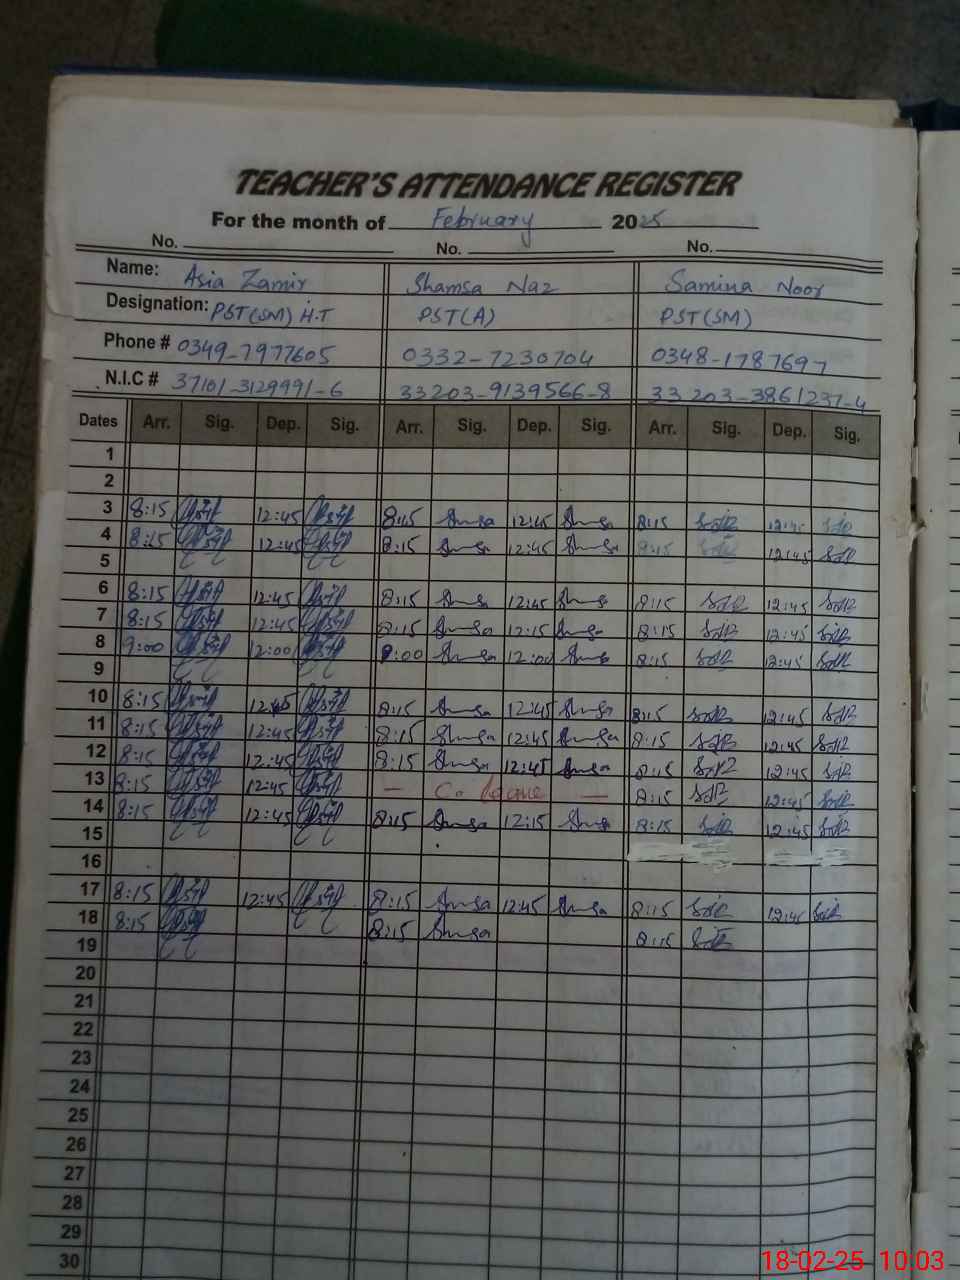 TEACHER'S ATTENDANCE REGISTER
For the month of February 2025
No. No. No.
Name: Asia Zamir Shamsa Naz Samina Noor
Designation: PST(SM) H.T PST(A) PST(SM)
Phone # 0349-7977605 0332-7230704 0348-1787697
N.I.C # 37101-3129991-6 33203-9139566-8 33203-3861237-4
Dates Arr. Sig. Dep. Sig. Arr. Sig. Dep. Sig. Arr. Sig. Dep. Sig.
1
2
3 8:15 12:45 8:15 Shamsa 12:45 Shamsa 8:15 12:45
4 8:15 12:45 8:15 Shamsa 12:45 Shamsa 8:15 12:45
5
6 8:15 12:45 8:15 Shamsa 12:45 Shamsa 8:15 12:45
7 8:15 12:45 8:15 Shamsa 12:15 Shamsa 8:15 12:45
8 9:00 12:00 9:00 Shamsa 12:00 Shamsa 8:15 12:45
9
10 8:15 12:45 8:15 Shamsa 12:45 Shamsa 8:15 12:45
11 8:15 12:45 8:15 Shamsa 12:45 Shamsa 8:15 12:45
12 8:15 12:45 8:15 Shamsa 12:45 Shamsa 8:15 12:45
13 8:15 12:45 — C. leave — 8:15 12:45
14 8:15 12:45 8:15 Shamsa 12:15 Shamsa 8:15 12:45
15
16
17 8:15 12:45 8:15 Shamsa 12:45 Shamsa 8:15 12:45
18 8:15 8:15 Shamsa 8:15
19
20
21
22
23
24
25
26
27
28
29
30
18-02-25 10:03